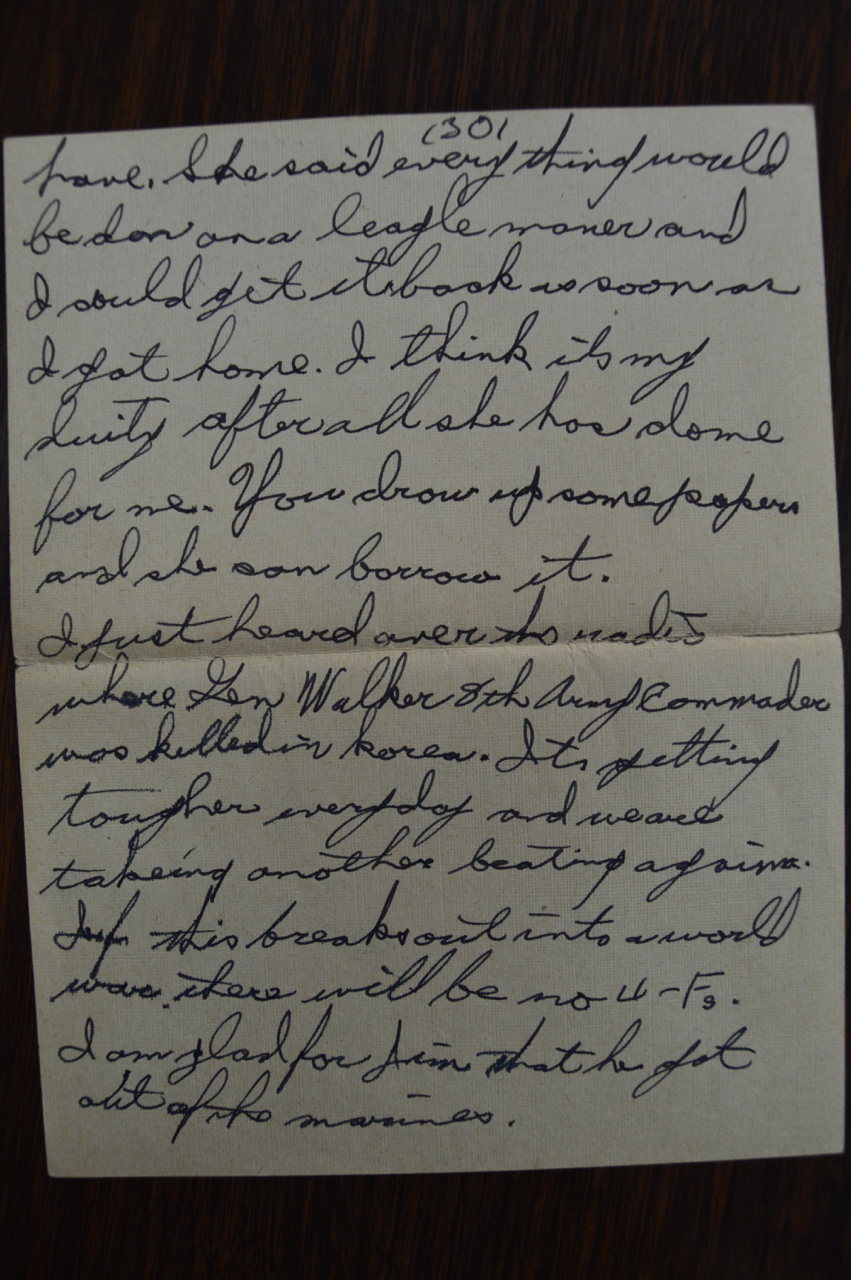 (30)
have. She said every thing would
be don on a leagle maner and
I could get it back as soon as
I got home. I think its my
duity after all she has dome
for me. You drow up some papers
and she can borrow it.
I just heard over the radio
where Gen Walker 8th Army Commader
was killed in korea. Its getting
tougher everyday and we are
takeing another beating again.
If this breaks out into a world
war. there will be no 4-Fs.
I am glad for Jim that he got
out of the marines.